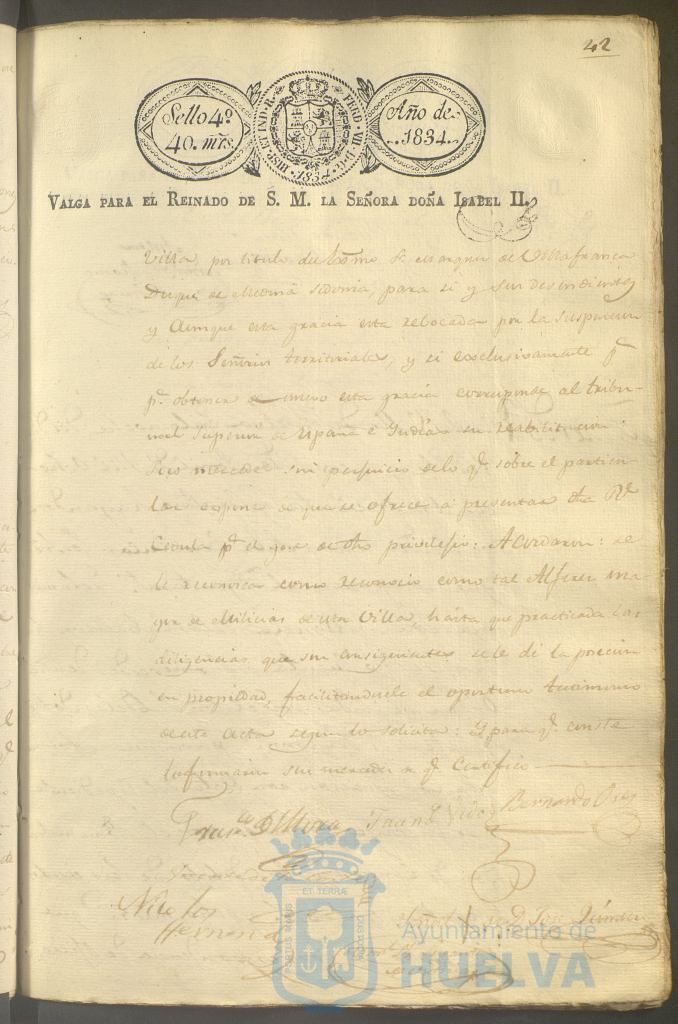 42
Sello 4º
40. mrs.
HISP. ET IND. R. FERD. VII. D. G.
1834.
Año de
1834.
VALGA PARA EL REINADO DE S. M. LA SEÑORA DOÑA ISABEL II.
Villa, por titulo del Exmo Sr. Marques de Villafranca
Duque de Medina Sidonia, para si y sus descendientes
y aunque esta gracia esta rebocada por la suspencion
de los Señorios territoriales, y si exclusivamente
pa. obtener de nuevo esta gracia corresponde al tribu-
nal Superior de España e Indias su reabilitacion:
Sus mercedes sin perjuicio de lo qe. sobre el particu-
lar espone de que se ofrece a presentar dha Rl.
Cedula pa. el goce de dho privilegio: Acordaron: se
le reconosca como reconocio como tal Alferez ma-
yor de Milicias de esta Villa, hasta que practicada las
diligencias que son consiguientes se le dé la posecion
en propiedad, facilitandosele el oportuno testimonio
de este Acta segun lo solicita: Y para qe. conste
lo firmaron sus mercedes de qe. Certifico
Bernardo
Nicolas
Jose
ET TERRÆ
PORTUS MARIS
CUSTODIA
Ayuntamiento de
HUELVA